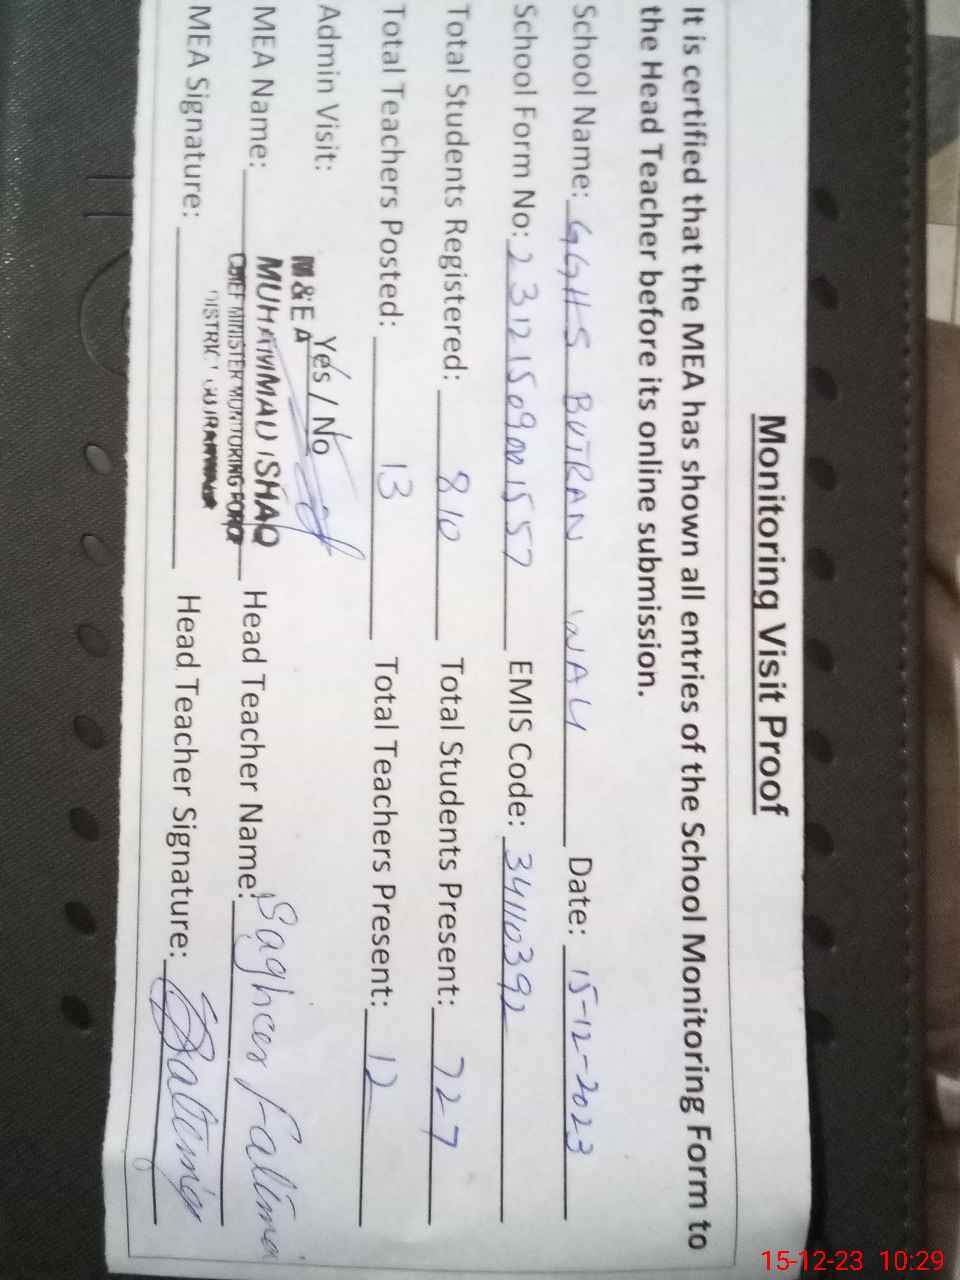 Monitoring Visit Proof
It is certified that the MEA has shown all entries of the School Monitoring Form to
the Head Teacher before its online submission.
School Name: GGHS BUTRAN WALI Date: 15-12-2023
School Form No: EMIS Code: 34110392
Total Students Registered: 810 Total Students Present: 727
Total Teachers Posted: 13 Total Teachers Present: 12
Admin Visit: Yes / No
M&EA
MEA Name: MUHAMMAD ISHAQ Head Teacher Name: Sagheer Fatima
CHIEF MINISTER MONITORING FORCE
MEA Signature: DISTRICT GUJRANWALA Head Teacher Signature:
15-12-23 10:29